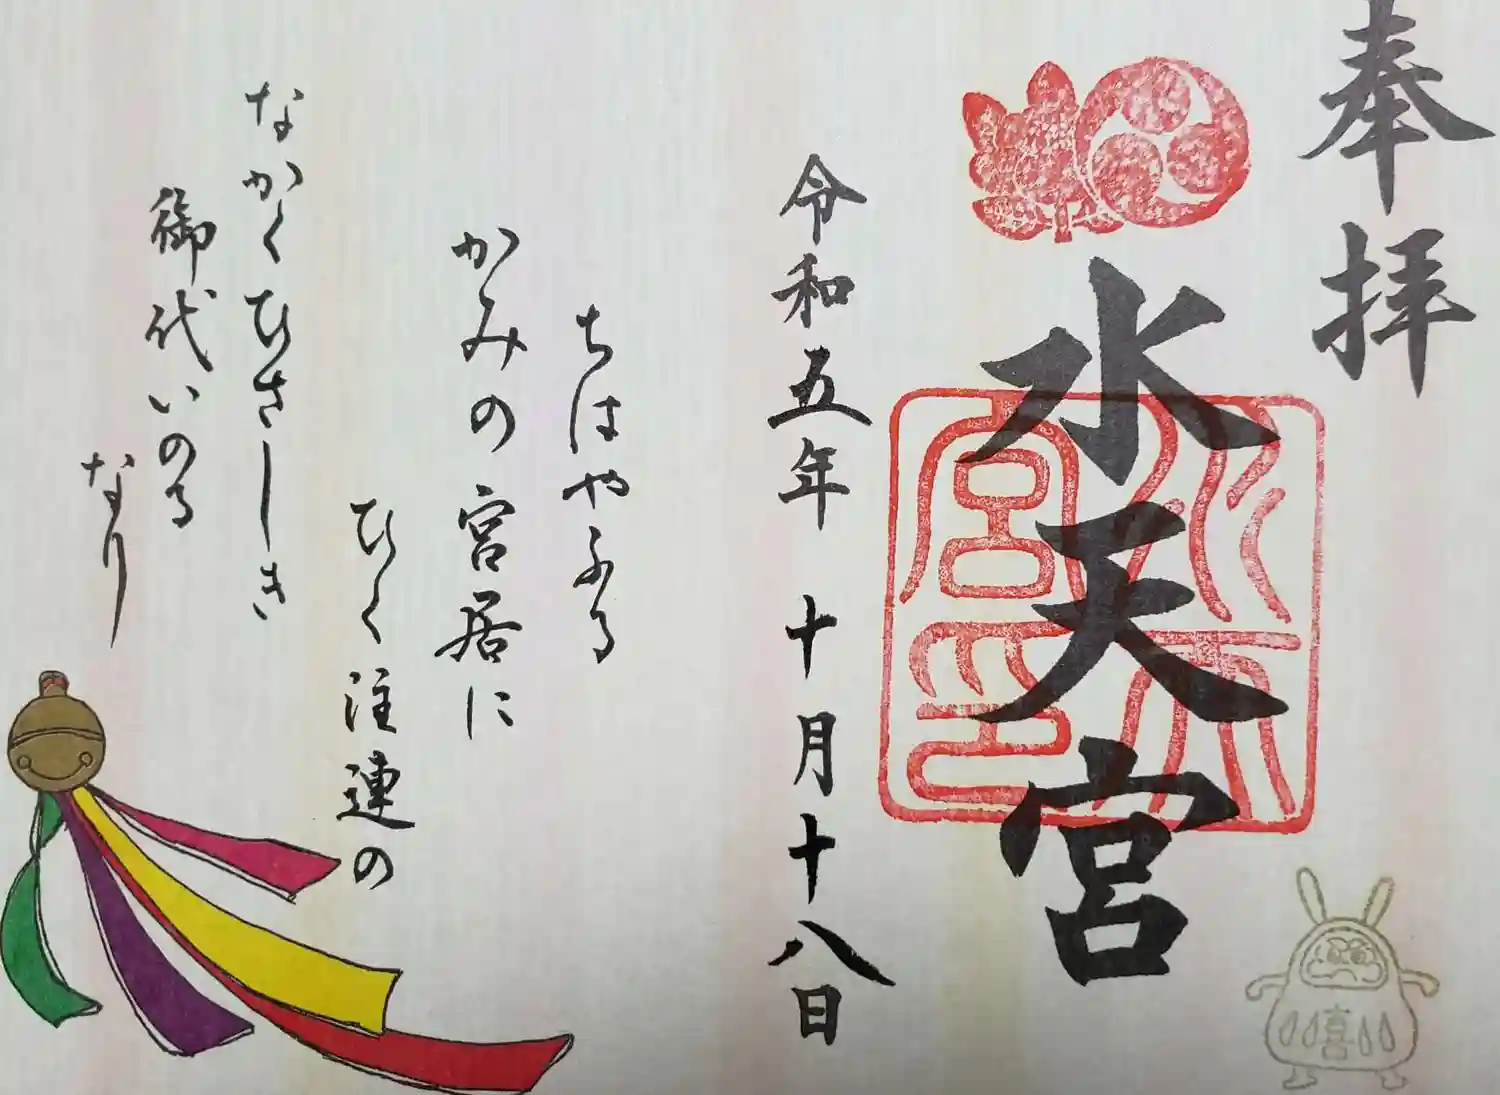 奉拝
水天宮
令和五年 十月十八日
水天宮印
喜
ちはやふる
かみの宮居に
ひく注連の
なかくひさしき
御代いのる
なり